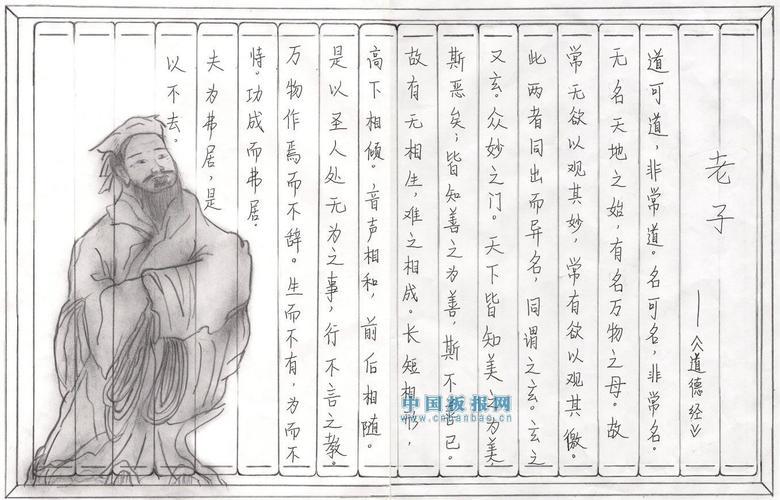 老子
——《道德经》
道可道，非常道。名可名，非常名。
无名天地之始，有名万物之母。故
常无欲以观其妙，常有欲以观其徼。
此两者同出而异名，同谓之玄。玄之
又玄。众妙之门。天下皆知美之为美，
斯恶矣；皆知善之为善，斯不善已。
故有无相生，难之相成。长短相形，
高下相倾。音声相和，前后相随。
是以圣人处无为之事，行不言之教。
万物作焉而不辞。生而不有，为而不
恃。功成而弗居。
夫为弗居，是
以不去。
中国板报网
www.cnbanbao.cn